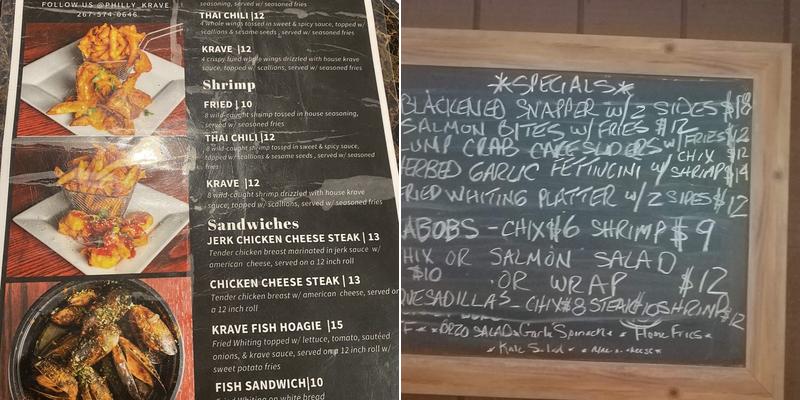 FOLLOW US @PHILLY_KRAVE
267-574-0646
seasoning, served w/ seasoned fries
THAI CHILI |12
4 whole wings tossed in sweet & spicy sauce, topped w/
scallions & sesame seeds , served w/ seasoned fries
KRAVE |12
4 crispy fried whole wings drizzled with house krave
sauce, topped w/ scallions, served w/ seasoned fries
Shrimp
FRIED | 10
8 wild-caught shrimp tossed in house seasoning,
served w/ seasoned fries
THAI CHILI |12
8 wild-caught shrimp tossed in sweet & spicy sauce,
topped w/ scallions & sesame seeds , served w/ seasoned
fries
KRAVE |12
8 wild-caught shrimp drizzled with house krave
sauce, topped w/ scallions, served w/ seasoned fries
Sandwiches
JERK CHICKEN CHEESE STEAK | 13
Tender chicken breast marinated in jerk sauce w/
american cheese, served on a 12 inch roll
CHICKEN CHEESE STEAK | 13
Tender chicken breast w/ american cheese, served on
a 12 inch roll
KRAVE FISH HOAGIE |15
Fried Whiting topped w/ lettuce, tomato, sautéed
onions, & krave sauce, served on a 12 inch roll w/
sweet potato fries
FISH SANDWICH|10
Fried Whiting on white bread
*SPECIALS*
BLACKENED SNAPPER w/2 SIDES $18
SALMON BITES w/ FRIES $12
LUMP CRAB CAKE SLIDERS w/ FRIES $12
CHIX $12
HERBED GARLIC FETTUCINI w/ SHRIMP $14
FRIED WHITING PLATTER w/2 SIDES $12
KABOBS - CHIX $6 SHRIMP $9
CHIX OR SALMON SALAD
$10 OR WRAP $12
QUESADILLAS CHIX $8 STEAK $10 SHRIMP $12
ORZO SALAD * Garlic Spinach * Home Fries *
* Kale Salad * * Mac n cheese *